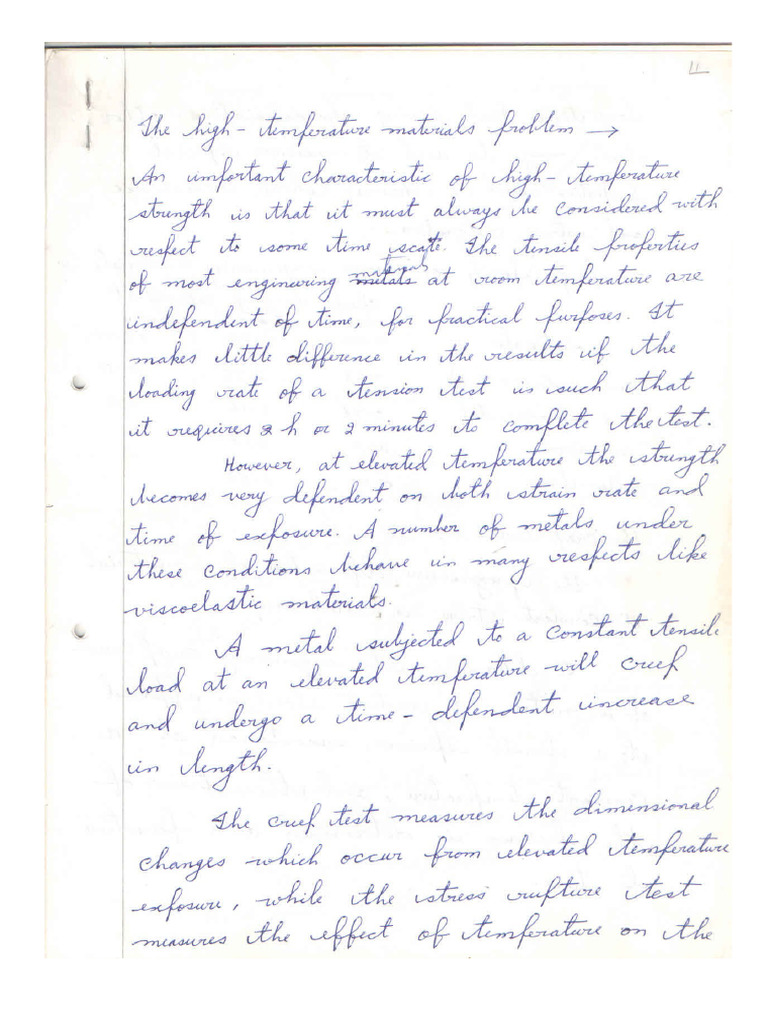 11
The high-temperature materials problem →
An important characteristic of high-temperature
strength is that it must always be considered with
respect to some time scale. The tensile properties
materials
of most enginuring metals at room temperature are
independent of time, for practical purposes. It
makes little difference in the results if the
loading rate of a tension test is such that
it requires 2 h or 2 minutes to complete the test.
However, at elevated temperature the strength
becomes very dependent on both strain rate and
time of exposure. A number of metals under
these conditions behave in many respects like
viscoelastic materials.
A metal subjected to a constant tensile
load at an elevated temperature will creep
and undergo a time-dependent increase
in length.
The creep test measures the dimensional
changes which occur from elevated temperature
exposure, while the stress rupture test
measures the effect of temperature on the